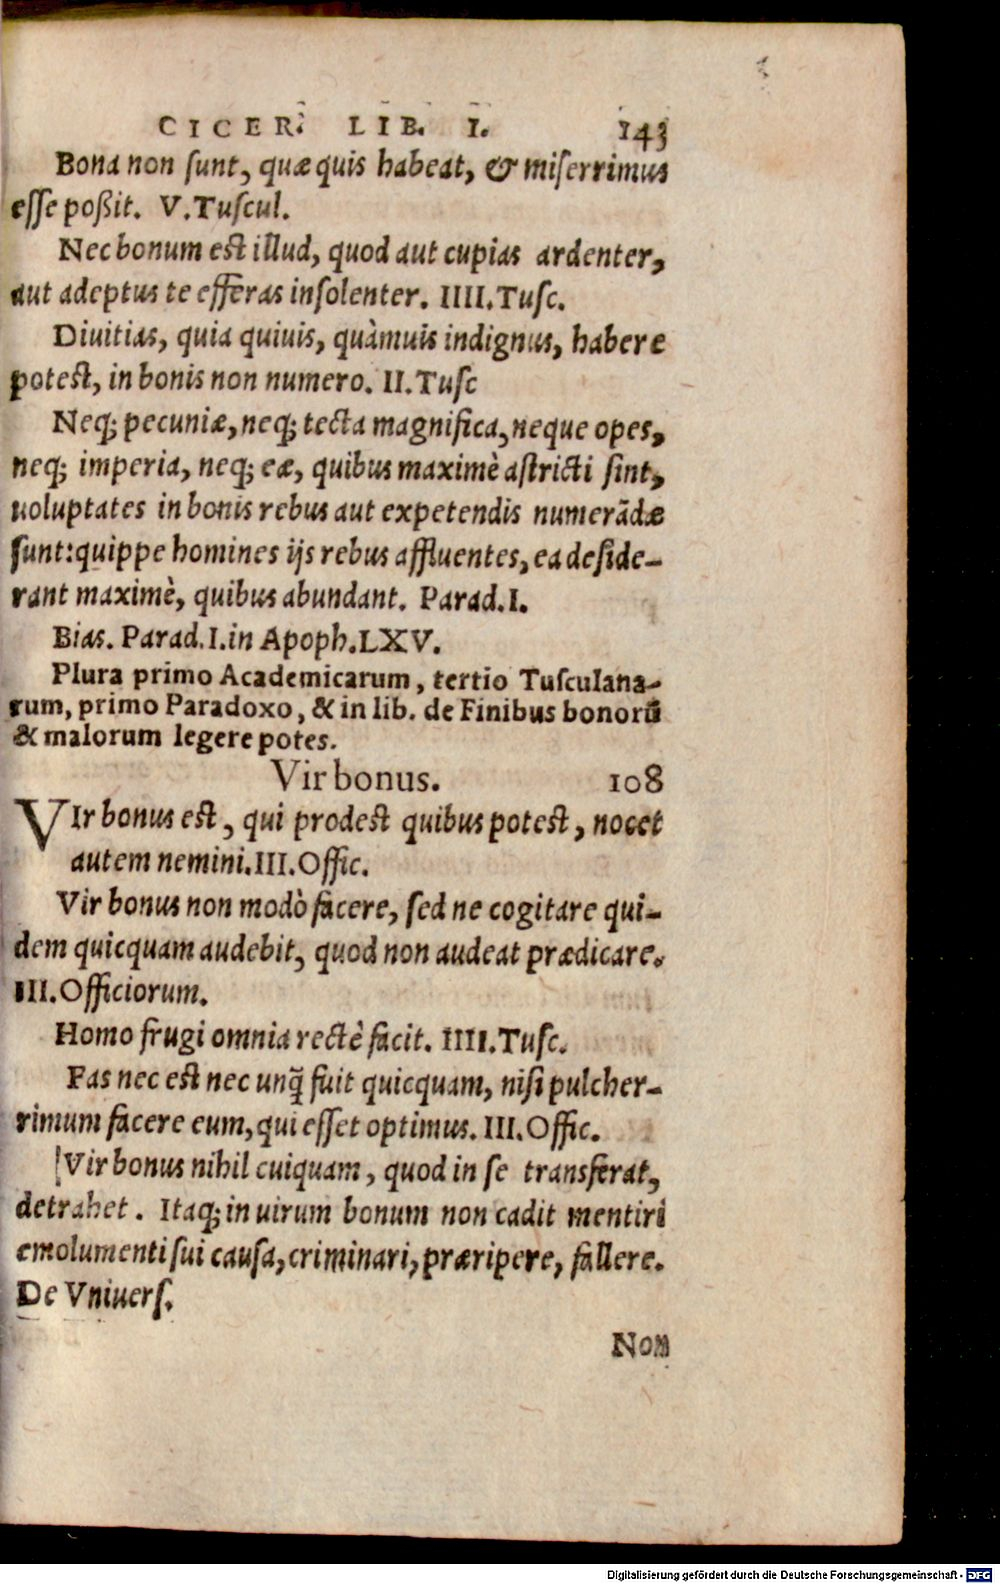 CICER. LIB. I. 143
Bona non sunt, quæ quis habeat, & miserrimus
esse poßit. V. Tuscul.
Nec bonum est illud, quod aut cupias ardenter,
aut adeptus te efferas insolenter. IIII. Tusc.
Diuitias, quia quiuis, quàmuis indignus, habere
potest, in bonis non numero. II. Tusc
Neq; pecuniæ, neq; tecta magnifica, neque opes,
neq; imperia, neq; eæ, quibus maximè astricti sint,
uoluptates in bonis rebus aut expetendis numerãdæ
sunt: quippe homines ijs rebus affluentes, ea deside-
rant maximè, quibus abundant. Parad. I.
Bias. Parad. I. in Apoph. LXV.
Plura primo Academicarum, tertio Tusculana-
rum, primo Paradoxo, & in lib. de Finibus bonorũ
& malorum legere potes.
Vir bonus. 108
VIr bonus est, qui prodest quibus potest, nocet
autem nemini. III. Offic.
Vir bonus non modò facere, sed ne cogitare qui-
dem quicquam audebit, quod non audeat prædicare.
III. Officiorum.
Homo frugi omnia rectè facit. IIII. Tusc.
Fas nec est nec unq̃ fuit quicquam, nisi pulcher-
rimum facere eum, qui esset optimus. III. Offic.
Vir bonus nihil cuiquam, quod in se transferat,
detrahet. Itaq; in uirum bonum non cadit mentiri
emolumenti sui causa, criminari, præripere, fallere.
De Vniuers.
Non
Digitalisierung gefördert durch die Deutsche Forschungsgemeinschaft - DFG